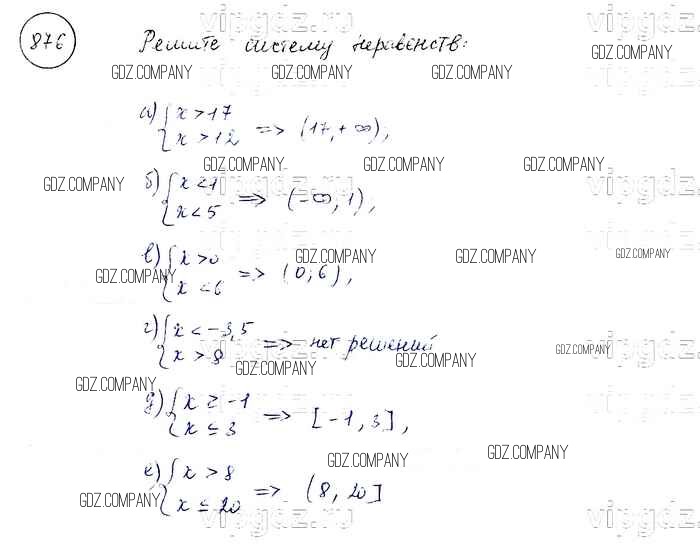 876 Решите систему неравенств:
а) { x > 17
x > 12 => (17, +∞),
б) { x < 1
x < 5 => (-∞, 1),
в) { x > 0
x < 6 => (0; 6),
г) { x < -3,5
x > 8 => нет решений
д) { x ≥ -1
x ≤ 3 => [-1, 3],
е) { x > 8
x ≤ 20 => (8, 20]
vipgdz.ru
GDZ.COMPANY
GDZ.COMPANY GDZ.COMPANY GDZ.COMPANY
GDZ.COMPANY GDZ.COMPANY GDZ.COMPANY
GDZ.COMPANY
vipgdz.ru vipgdz.ru
GDZ.COMPANY GDZ.COMPANY GDZ.COMPANY
GDZ.COMPANY
vipgdz.ru vipgdz.ru
GDZ.COMPANY
GDZ.COMPANY GDZ.COMPANY
GDZ.COMPANY
vipgdz.ru
GDZ.COMPANY GDZ.COMPANY
GDZ.COMPANY
vipgdz.ru vipgdz.ru